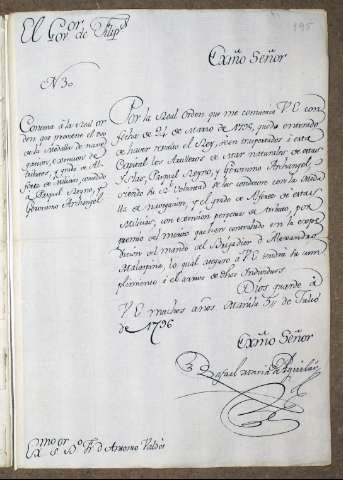 El Gor. de Filips
395
Exmo Señor
N 3o
Contexta á la Real or
den que previene el uso
de la Medalla de nave
gacion, exencion de
tributos, y grado de Al
ferez de Milicias, concedido
á Pasqual Reyno, y
Geronimo Archangel
Por la Real Orden que me comunica V.E. con
fecha de 24 de Marzo de 1795, quedo enterado
de haver resuelto el Rey, sean transportados á esta
Capital los Artilleros de Mar naturales de estas
Yslas, Pasqual Reyno, y Geronimo Archangel,
siendo su Rl. Voluntad se les condecore con la Meda
lla de navegacion, y el grado de Alferez de estas
Milicias, con exencion perpetua de tributo, por
premio del merito que han contrahido en la expe
dicion al mando del Brigadier dn. Alexandro
Malaspina, lo qual aseguro á V.E. tendrá su cum
plimiento á el arrivo de dhos Individuos.
Dios guarde á
V.E. muchos años. Manila de Julio
de 1796
Exmo Señor
Rafael Maria de Aguilar
Exmo Sor Bo. Fr. dn. Antonio Valdés